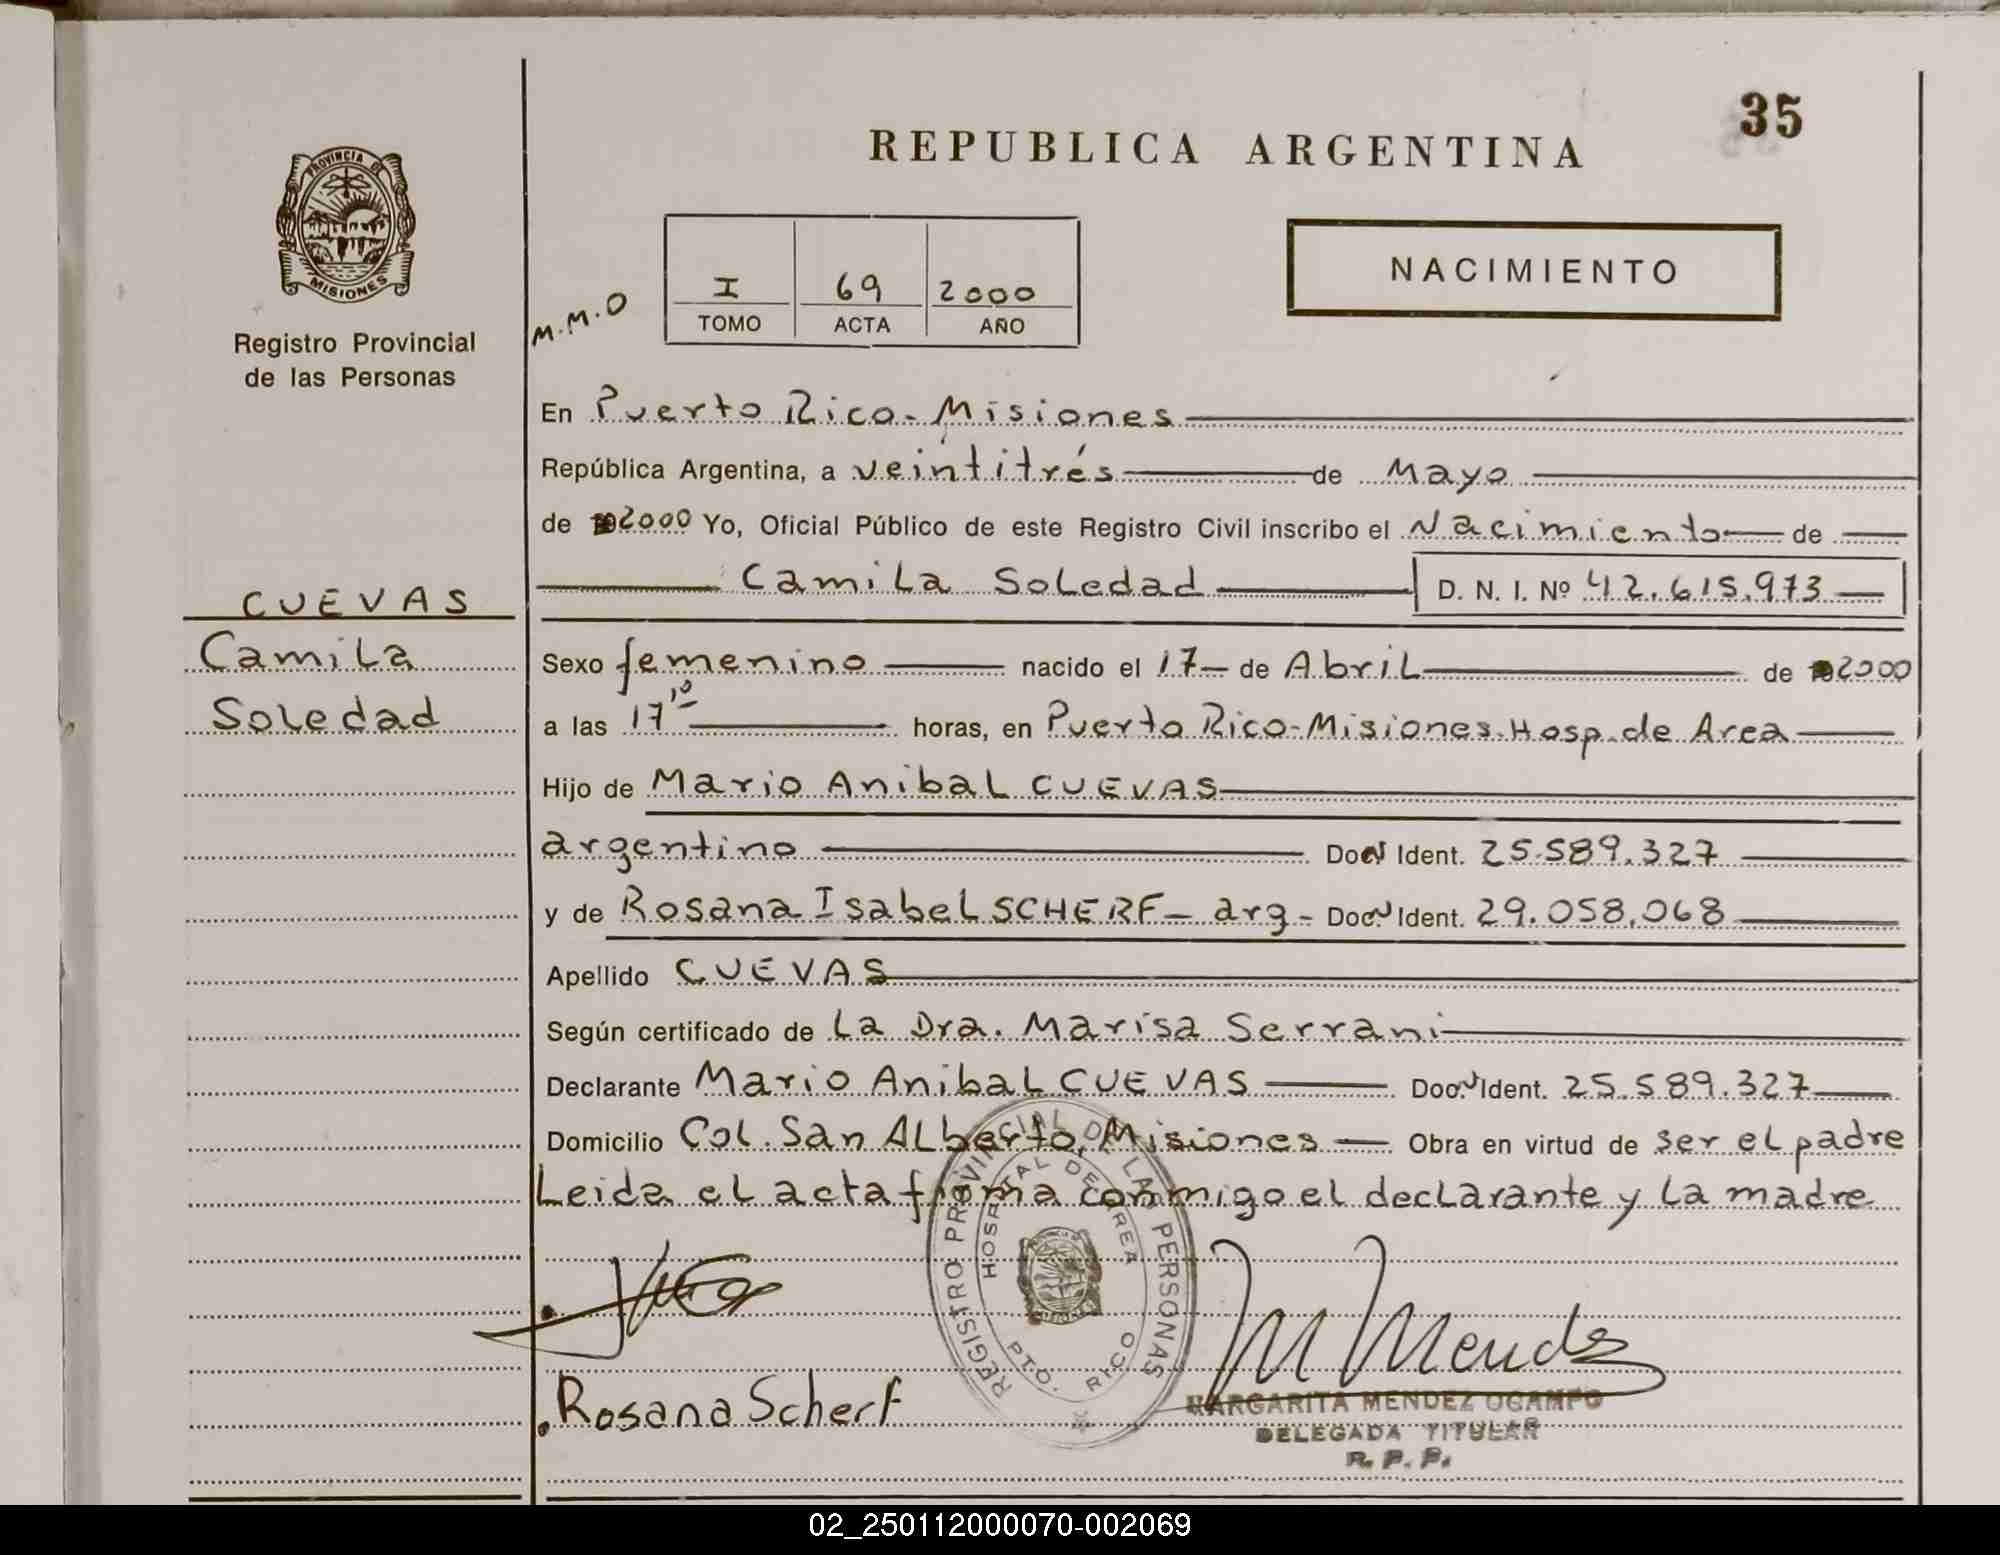 35
REPUBLICA ARGENTINA
PROVINCIA DE
MISIONES
Registro Provincial
de las Personas
M.M.O
I 69 2000
TOMO ACTA AÑO
NACIMIENTO
En Puerto Rico - Misiones
República Argentina, a veintitrés de Mayo
de 2000 Yo, Oficial Público de este Registro Civil inscribo el Nacimiento de
Camila Soledad D. N. I. Nº 42.615.973
CUEVAS
Camila
Soledad
Sexo femenino nacido el 17 de Abril de 2000
a las 17 10 horas, en Puerto Rico-Misiones. Hosp. de Area
Hijo de Mario Anibal CUEVAS
argentino Doc. Ident. 25.589.327
y de Rosana Isabel SCHERF - arg - Doc. Ident. 29.058.068
Apellido CUEVAS
Según certificado de La Dra. Marisa Serrani
Declarante Mario Anibal CUEVAS Doc. Ident. 25.589.327
Domicilio Col. San Alberto, Misiones Obra en virtud de ser el padre
Leida el acta firma conmigo el declarante y la madre
REGISTRO PROVINCIAL DE LAS PERSONAS
HOSPITAL DE AREA
PTO. RICO
M Mendez
Rosana Scherf
MARGARITA MENDEZ OCAMPO
DELEGADA TITULAR
R. P. P.
02_250112000070-002069